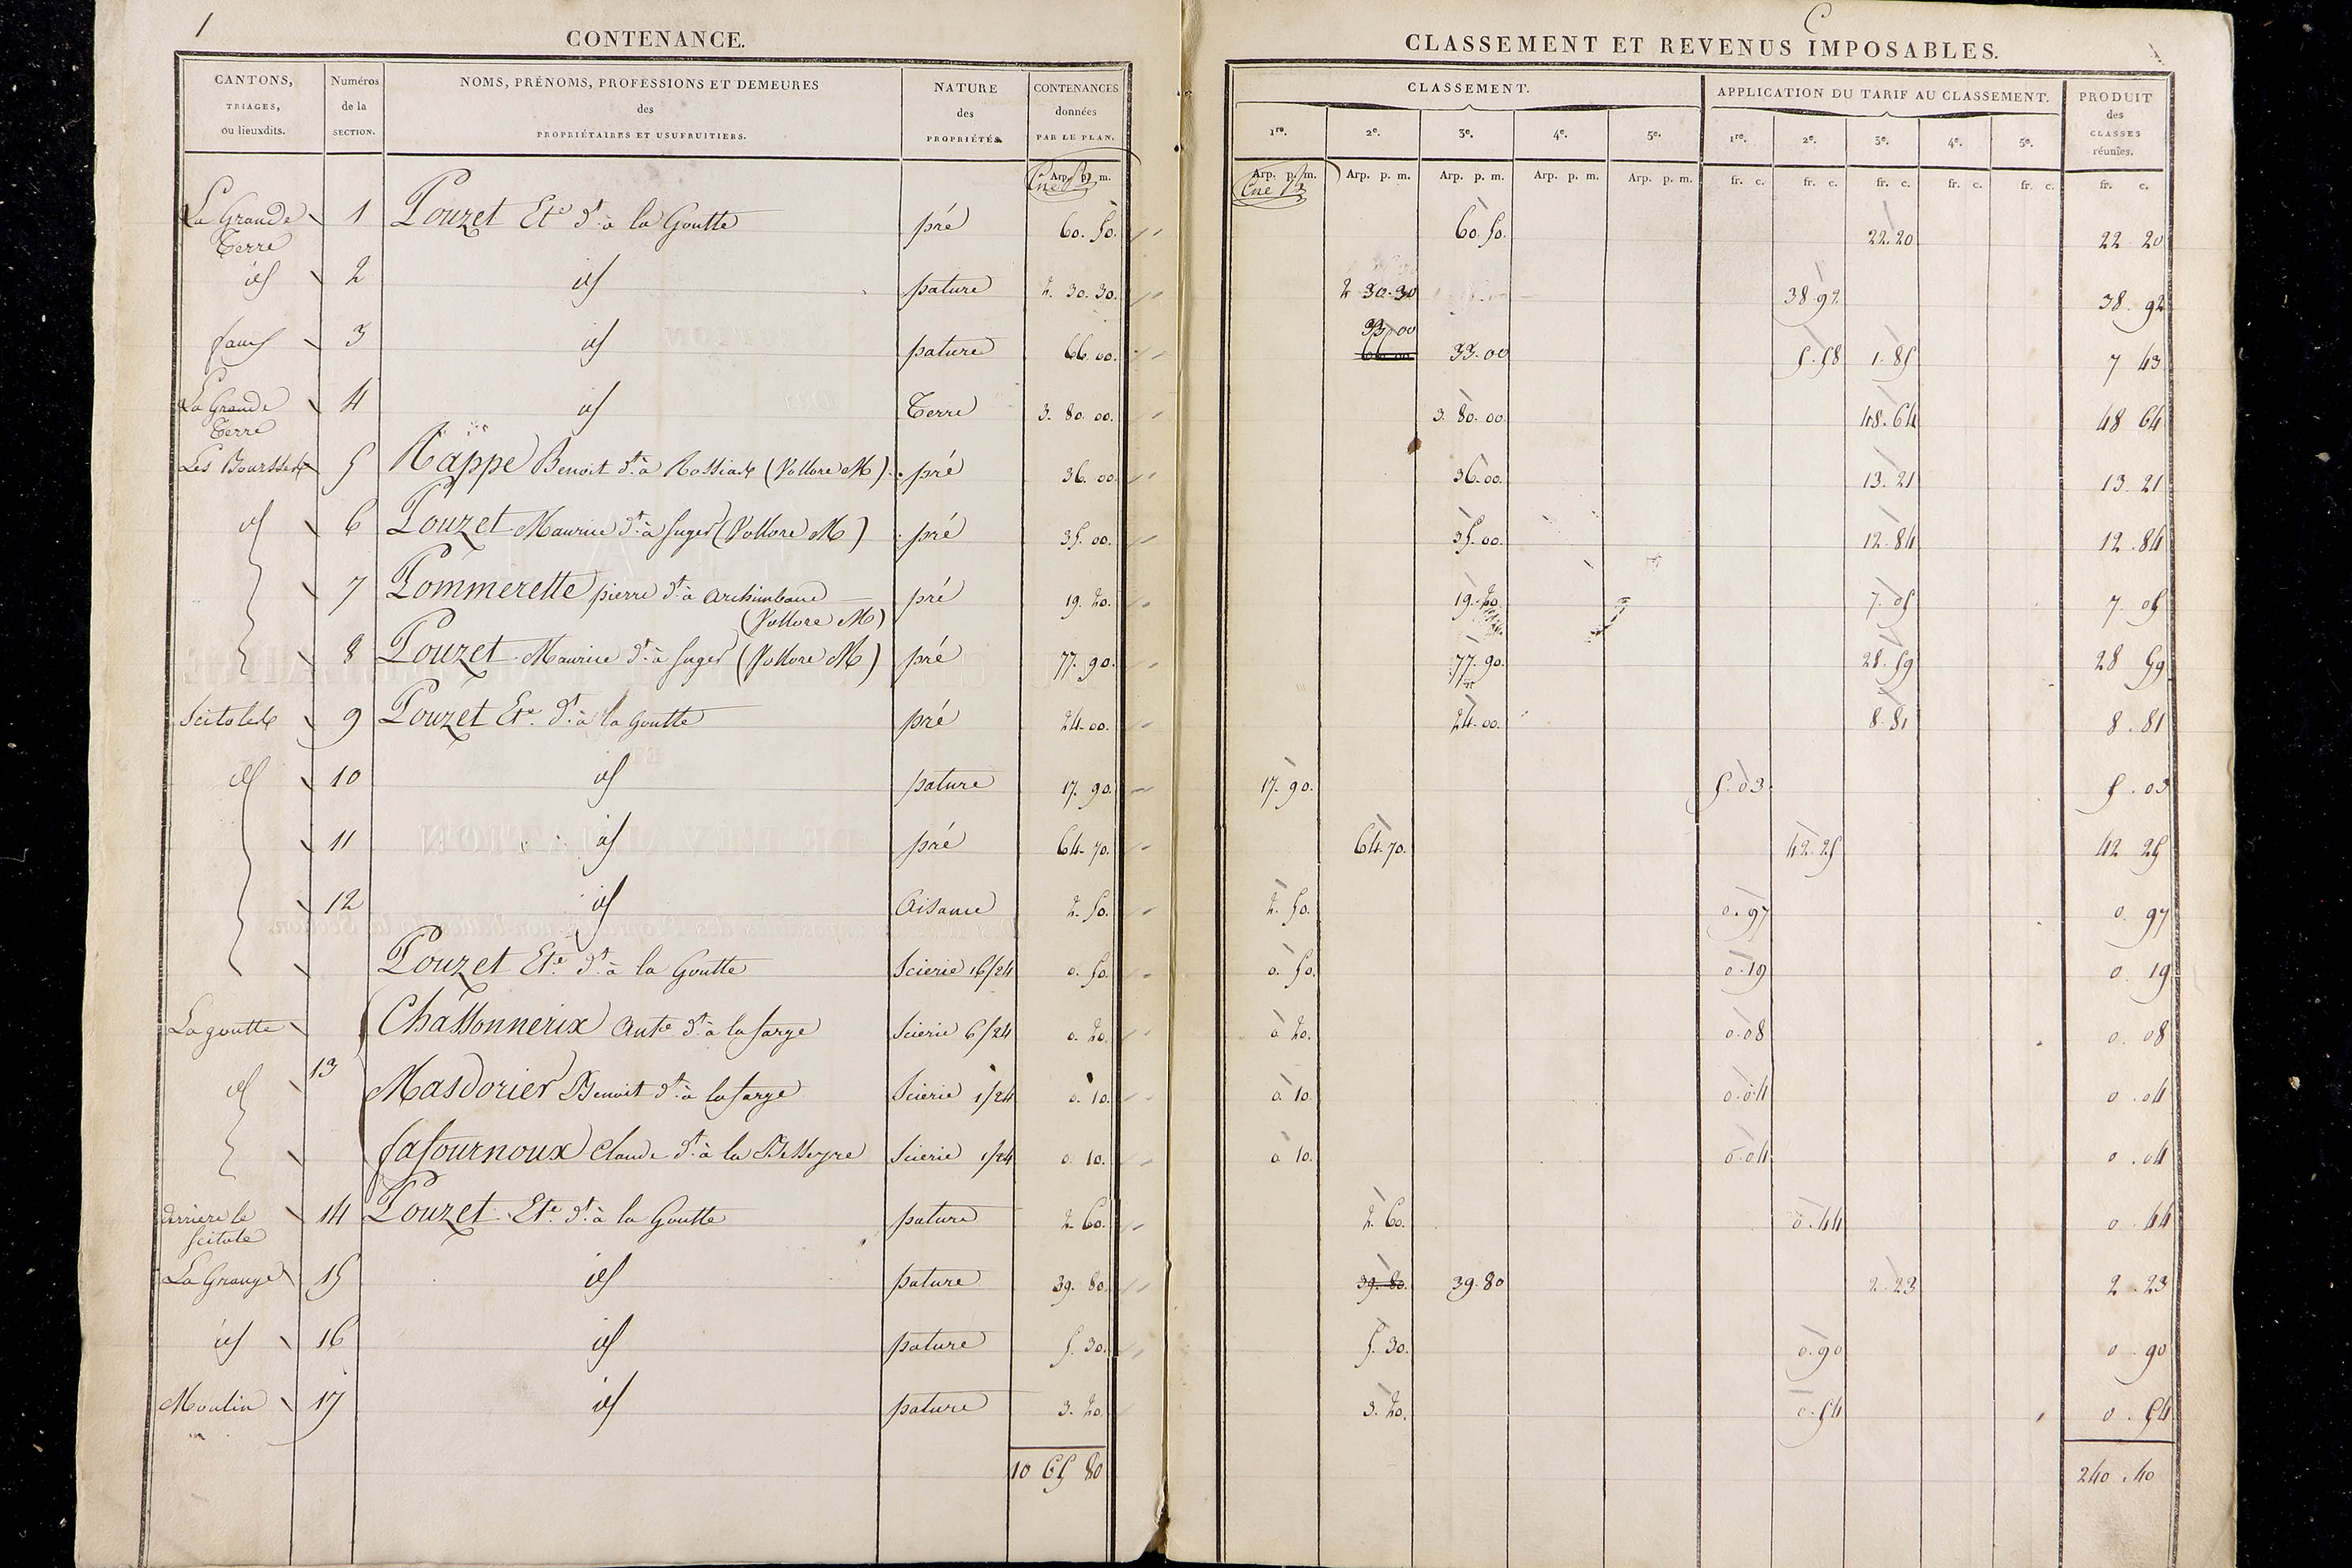 1
CONTENANCE.
CANTONS, TRIAGES, ou lieuxdits. | Numéros de la SECTION. | NOMS, PRÉNOMS, PROFESSIONS ET DEMEURES des PROPRIÉTAIRES ET USUFRUITIERS. | NATURE des PROPRIÉTÉS. | CONTENANCES données PAR LE PLAN.
Arp. p. m.
La Grande Terre 1 Pouzet Ete dt à la Goutte pré 60. 50.
id 2 id pature 2. 30. 30.
3 id pature 66. 00.
La Grande Terre 4 id Terre 3. 80. 00.
Les 5 Rappe Benoit dt à (Vollore M) pré 36. 00
id 6 Pouzet Maurice dt à (Vollore M) pré 35. 00.
7 Pommerette pierre dt à Archimbaud (Vollore M) pré 19. 20.
8 Pouzet Maurice dt à (Vollore M) pré 77. 90.
9 Pouzet Ete. dt à la Goutte pré 24. 00.
id 10 id pature 17. 90.
11 id pré 64. 70.
12 id Aisance 2. 50.
Pouzet Ete dt à la Goutte Scierie 16/24 0. 50.
La goutte Chassonnerix Ante dt à la farge Scierie 6/24 0. 20
id 13 Masdorier Benoit dt à la farge Scierie 1/24 0. 10.
Lafournoux Claude dt à la Besseyre Scierie 1/24 0. 10.
derrière le 14 Pouzet Ete dt à la Goutte pature 2. 60.
La Grange 15 id pature 39. 80.
id 16 id pature 5. 30.
Moulin 17 id pature 3. 20.
10 65 80
C
CLASSEMENT ET REVENUS IMPOSABLES.
CLASSEMENT. | APPLICATION DU TARIF AU CLASSEMENT. | PRODUIT des CLASSES réunies.
1re. 2e. 3e. 4e. 5e. 1re. 2e. 3e. 4e. 5e.
Arp. p. m. Arp. p. m. Arp. p. m. Arp. p. m. Arp. p. m. fr. c. fr. c. fr. c. fr. c. fr. c. fr. c.
60. 50. 22. 20 22 20
2 30. 30 38. 92 38. 92
33. 00
66 00 33. 00 5. 58 1. 85 7 43
3. 80. 00. 48. 64 48 64
36. 00. 13. 21 13. 21
35. 00. 12. 84 12. 84
19. 20. 7. 05 7. 05
77. 90. 28. 59 28 59
24. 00. 8. 81 8. 81
17. 90. 5. 03. 5. 03
64. 70. 42. 25 42 25
2. 50. 0. 97 0. 97
0. 50. 0. 19 0. 19
0. 20. 0. 08 0. 08
0. 10 0. 04 0. 04
0. 10. 0. 04 0. 04
2. 60. 0. 44 0. 44
39. 80. 39. 80 2. 23 2. 23
5. 30. 0. 90 0. 90
3. 20. 0. 54 0. 54
240. 40